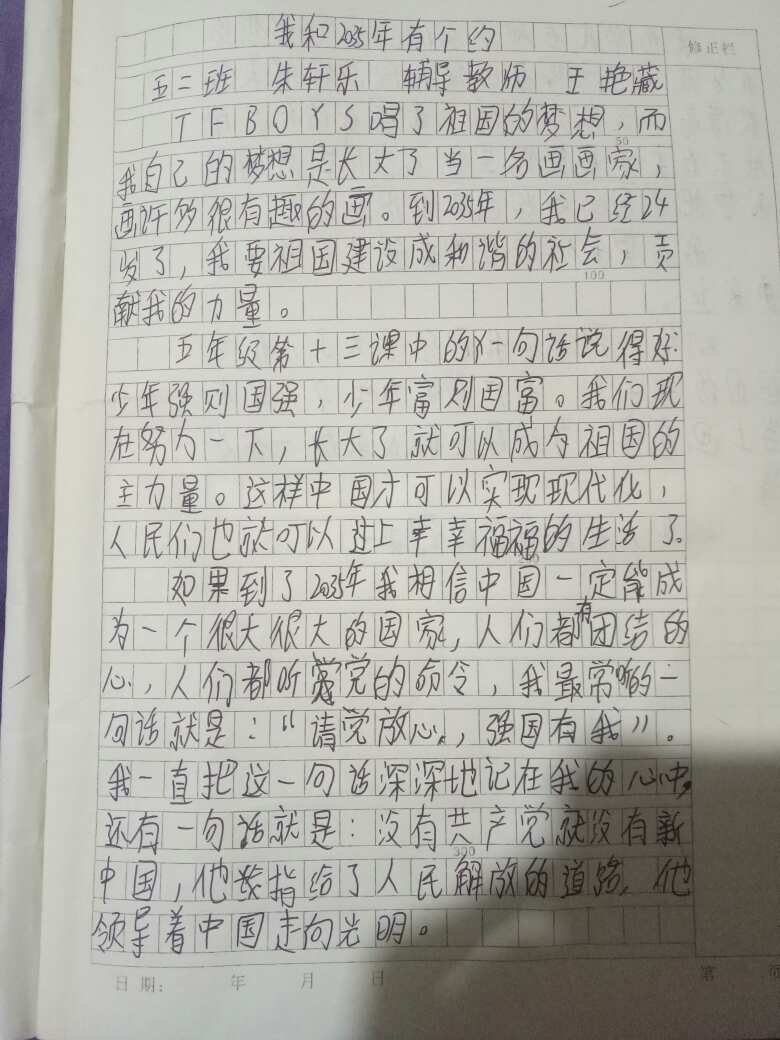 我和2035年有个约
修正栏
五二班 朱轩乐 辅导教师 王艳藏
TFBOYS唱了祖国的梦想，而
50
我自己的梦想是长大了当一名画画家，
画许多很有趣的画。到2035年，我已经24
岁了，我要祖国建设成和谐的社会，贡
100
献我的力量。
五年级第十三课中的一句话说得好:
少年强则国强，少年富则国富。我们现
在努力一下，长大了就可以成为祖国的
主力量。这样中国才可以实现现代化，
人民们也就可以过上幸幸福福的生活了。
如果到了2035年我相信中国一定能成
为一个很大很大的国家，人们都有团结的
心，人们都听党的命令，我最常听的一
句话就是：“请党放心，强国有我”。
我一直把这一句话深深地记在我的心中，
还有一句话就是：没有共产党就没有新
300
中国，他指给了人民解放的道路，他
领导着中国走向光明。
日期： 年 月 日
第 页